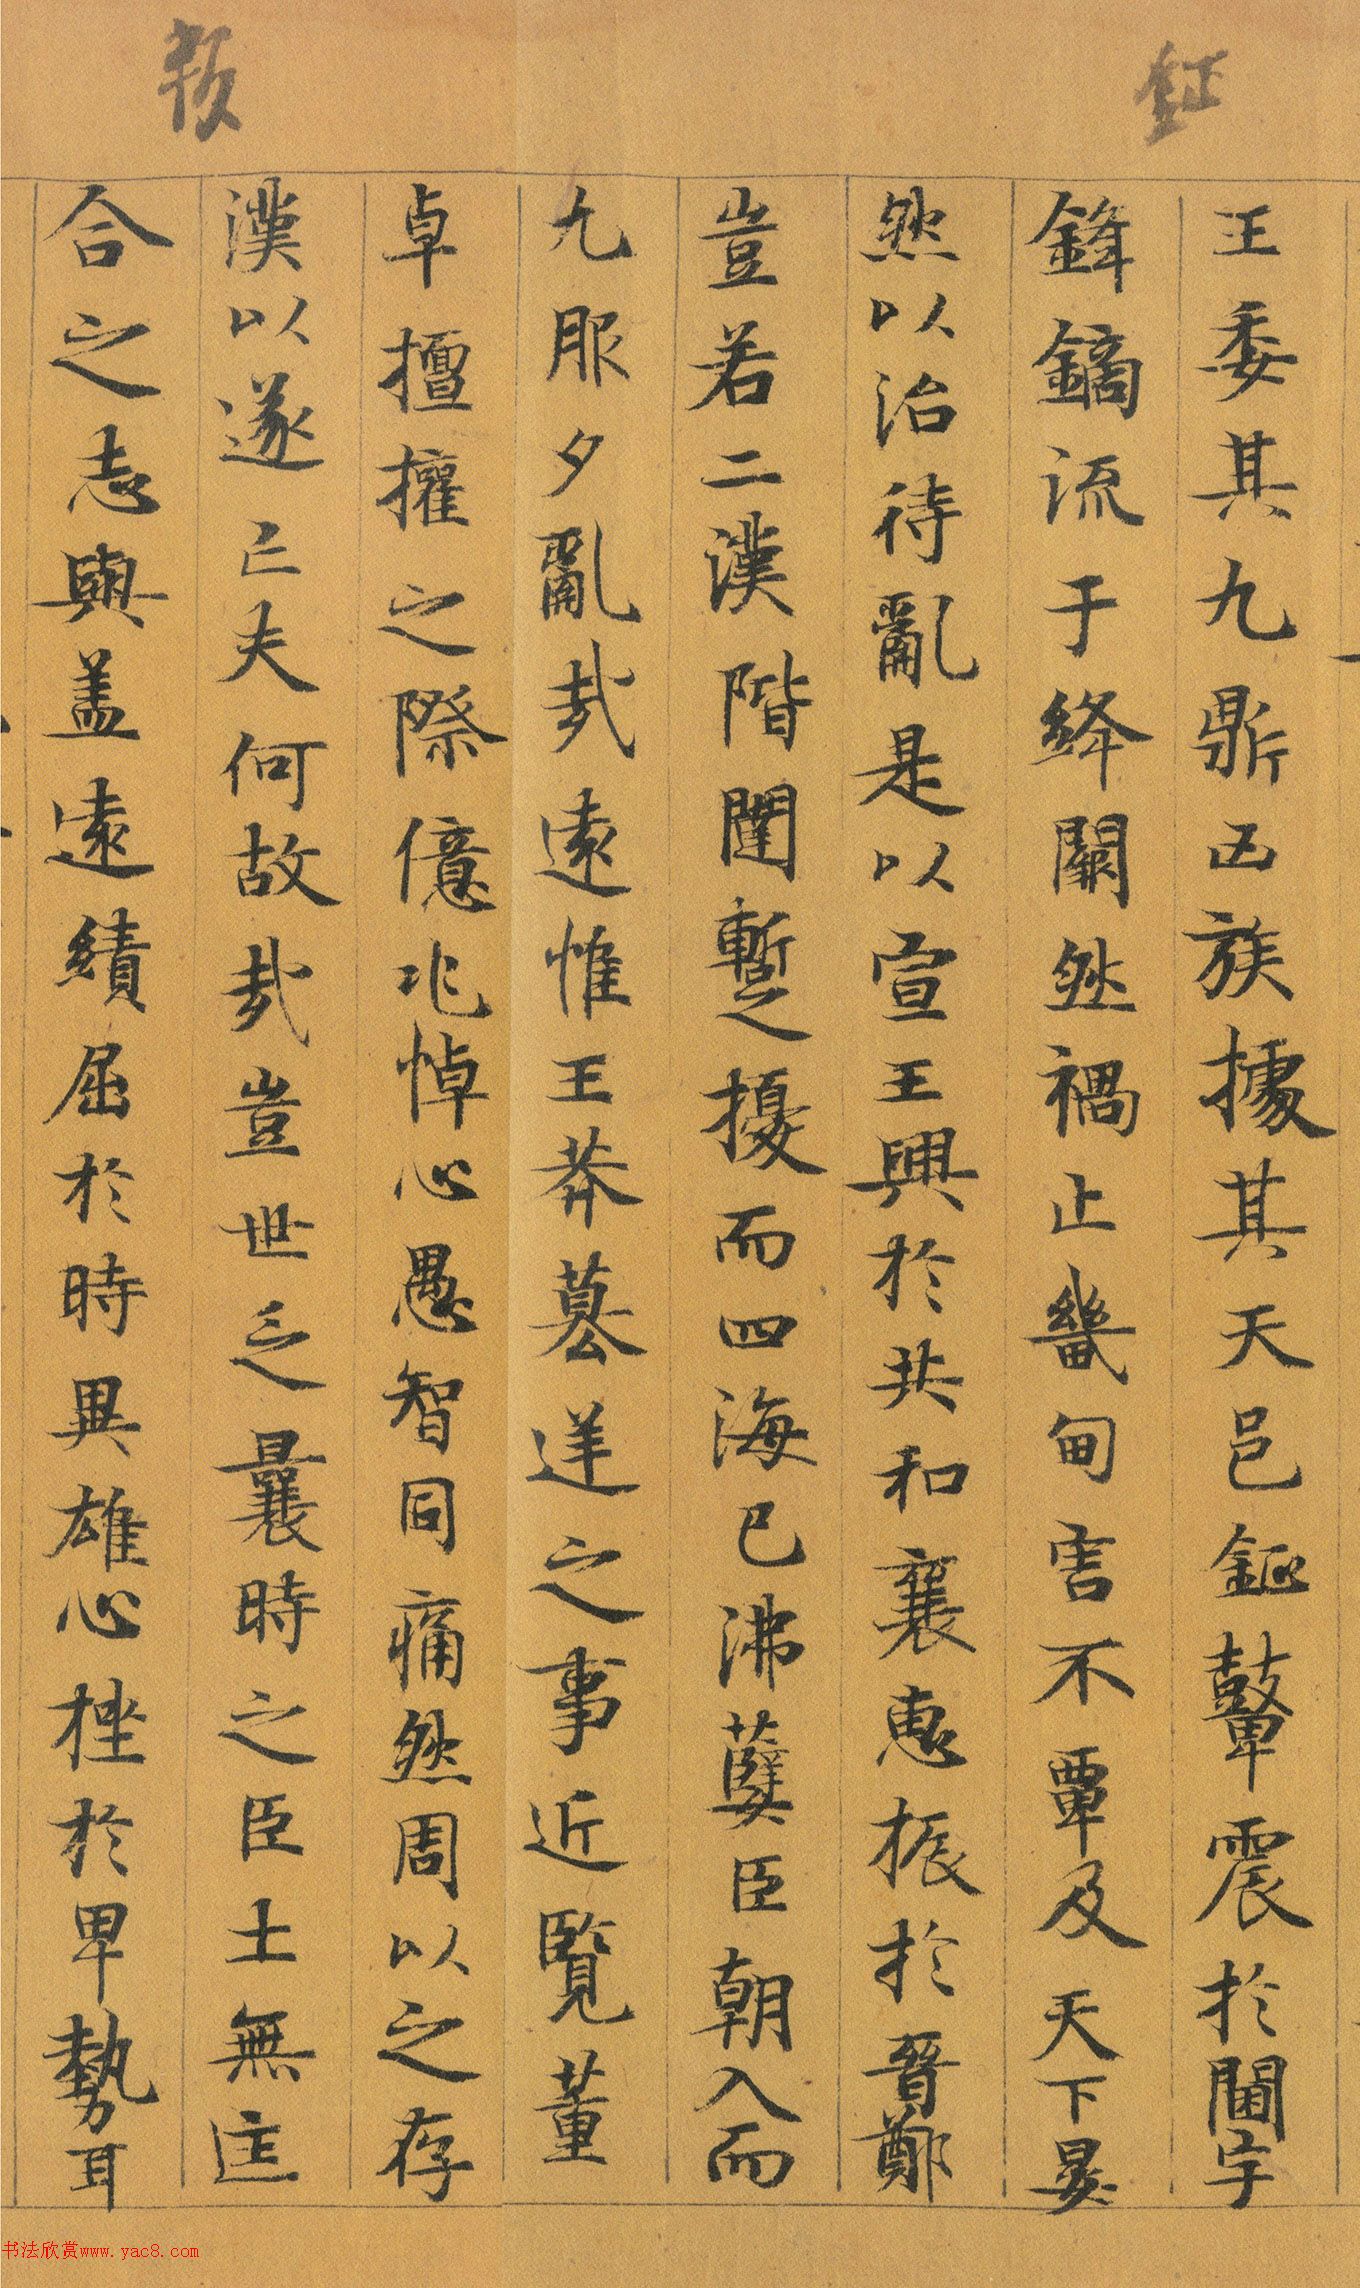 鉦
叛
王委其九鼎凶族據其天邑鉦鼙震於閫宇
鋒鏑流于絳闕然禍止畿甸害不覃及天下晏
然以治待亂是以宣王興於共和襄惠振於晉鄭
豈若二漢階闥蹔擾而四海已沸孽臣朝入而
九服夕亂哉遠惟王莽篡逆之事近覽董
卓擅權之際億兆悼心愚智同痛然周以之存
漢以遂亡夫何故哉豈世乏曩時之臣士無匡
合之志與盖遠績屈於時異雄心挫於卑勢耳
书法欣赏www.yac8.com